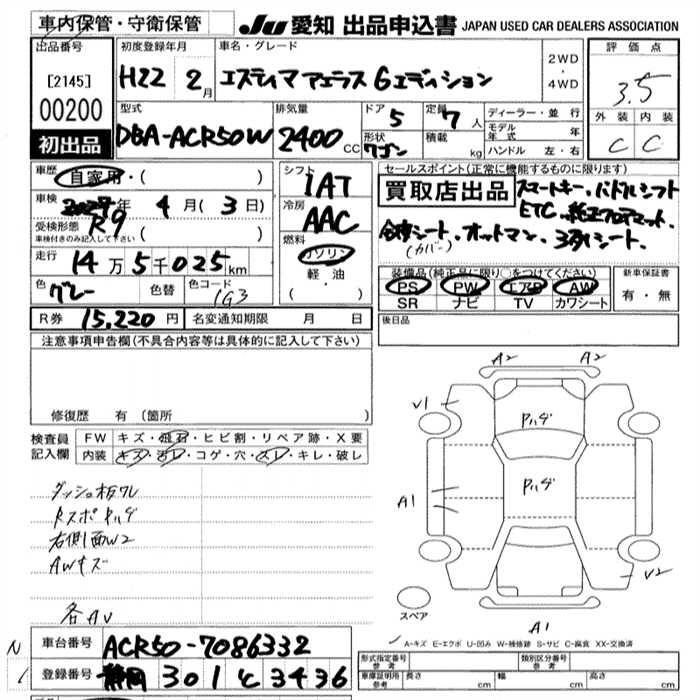 車内保管・守衛保管
JU 愛知 出品申込書 JAPAN USED CAR DEALERS ASSOCIATION
出品番号
[2145]
00200
初出品
初度登録年月
H22 2月
車名・グレード
エスティマ アエラス Gエディション
2WD
・
4WD
評価点
3.5
外装 内装
C C
型式
DBA-ACR50W
排気量
2400 CC
ドア 5
形状 ワゴン
定員 7 人
積載 kg
ディーラー・並行
モデル年式 年
ハンドル 左・右
車歴
自家用・( )
車検
R9 年 4月(3日)
受検形態
車検付きのみ記入して下さい ( )
走行
14万5千025km
色
グレー
色替
色コード
1G3
シフト
1AT
冷房
AAC
燃料
ガソリン
軽油
( )
セールスポイント(正常に機能するものに限ります)
買取店出品
スマートキー、パドルシフト
ETC、純正フロアマット、
合皮シート(カバー)、オットマン、3列シート、
装備品(純正品に限り○をつけてください)
PS PW エアB AW
SR ナビ TV カワシート
新車保証書
有・無
R券 15,220円
名変通知期限 月 日
後日品
注意事項申告欄(不具合内容等は具体的に記入して下さい)
修復歴 有(箇所
検査員記入欄
FW キズ・飛石・ヒビ割・リペア跡・X要
内装 キズ・汚レ・コゲ・穴・スレ・キレ・破レ
ダッシュ板ワレ
Rスポ Pハゲ
右側面W2
AWキズ
各AV
A2 A2
V1
Pハゲ
Pハゲ
A1
V2
スペア
A1
A-キズ E-エクボ U-凹み W-補修跡 S-サビ C-腐食 XX-交換済
車台番号 ACR50-7086332
登録番号 静岡 301 て 3436
形式指定番号 参考
類別区分番号 参考
車庫証明用 参考
長さ cm 幅 cm 高さ cm